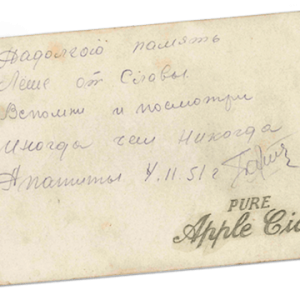 На долгою память
Леше от Славы.
Вспомни и посмотри
иногда чем никогда
Апатиты 4.11.51 г
PURE
Apple Ci